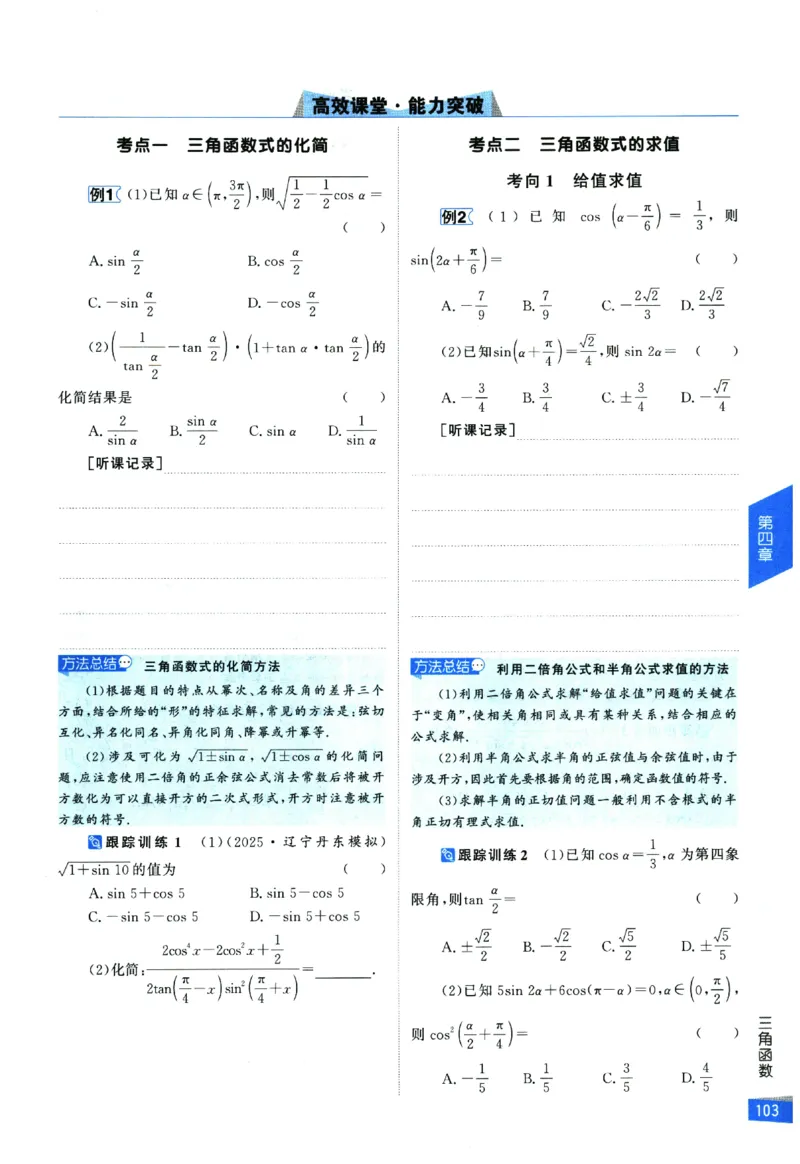 高效课堂·能力突破
考点一 三角函数式的化简
例1 (1)已知α∈(π,3π/2),则√(1/2-1/2cos α)=
( )
A. sin α/2 B. cos α/2
C. -sin α/2 D. -cos α/2
(2)(1/tan α/2-tan α/2)·(1+tan α·tan α/2)的
化简结果是 ( )
A. 2/sin α B. sin α/2 C. sin α D. 1/sin α
[听课记录]
方法总结 三角函数式的化简方法
(1)根据题目的特点从幂次、名称及角的差异三个
方面,结合所给的“形”的特征求解,常见的方法是:弦切
互化、异名化同名、异角化同角、降幂或升幂等.
(2)涉及可化为√(1±sin α),√(1±cos α)的化简问
题,应注意使用二倍角的正余弦公式消去常数后将被开
方数化为可以直接开方的二次式形式,开方时注意被开
方数的符号.
跟踪训练1 (1)(2025·辽宁丹东模拟)
√(1+sin 10)的值为 ( )
A. sin 5+cos 5 B. sin 5-cos 5
C. -sin 5-cos 5 D. -sin 5+cos 5
(2)化简:(2cos⁴x-2cos²x+1/2)/(2tan(π/4-x)sin²(π/4+x))=______.
考点二 三角函数式的求值
考向1 给值求值
例2 (1)已知 cos(α-π/6)=1/3,则
sin(2α+π/6)= ( )
A. -7/9 B. 7/9 C. -2√2/3 D. 2√2/3
(2)已知sin(α+π/4)=√2/4,则 sin 2α= ( )
A. -3/4 B. 3/4 C. ±3/4 D. -√7/4
[听课记录]
方法总结 利用二倍角公式和半角公式求值的方法
(1)利用二倍角公式求解“给值求值”问题的关键在
于“变角”,使相关角相同或具有某种关系,结合相应的
公式求解.
(2)利用半角公式求半角的正弦值与余弦值时,由于
涉及开方,因此首先要根据角的范围,确定函数值的符号.
(3)求解半角的正切值问题一般利用不含根式的半
角正切有理式求值.
跟踪训练2 (1)已知 cos α=1/3,α 为第四象
限角,则tan α/2= ( )
A. ±√2/2 B. -√2/2 C. √5/2 D. ±√5/5
(2)已知 5sin 2α+6cos(π-α)=0,α∈(0,π/2),
则 cos²(α/2+π/4)= ( )
A. -1/5 B. 1/5 C. 3/5 D. 4/5
第四章
三角函数
103